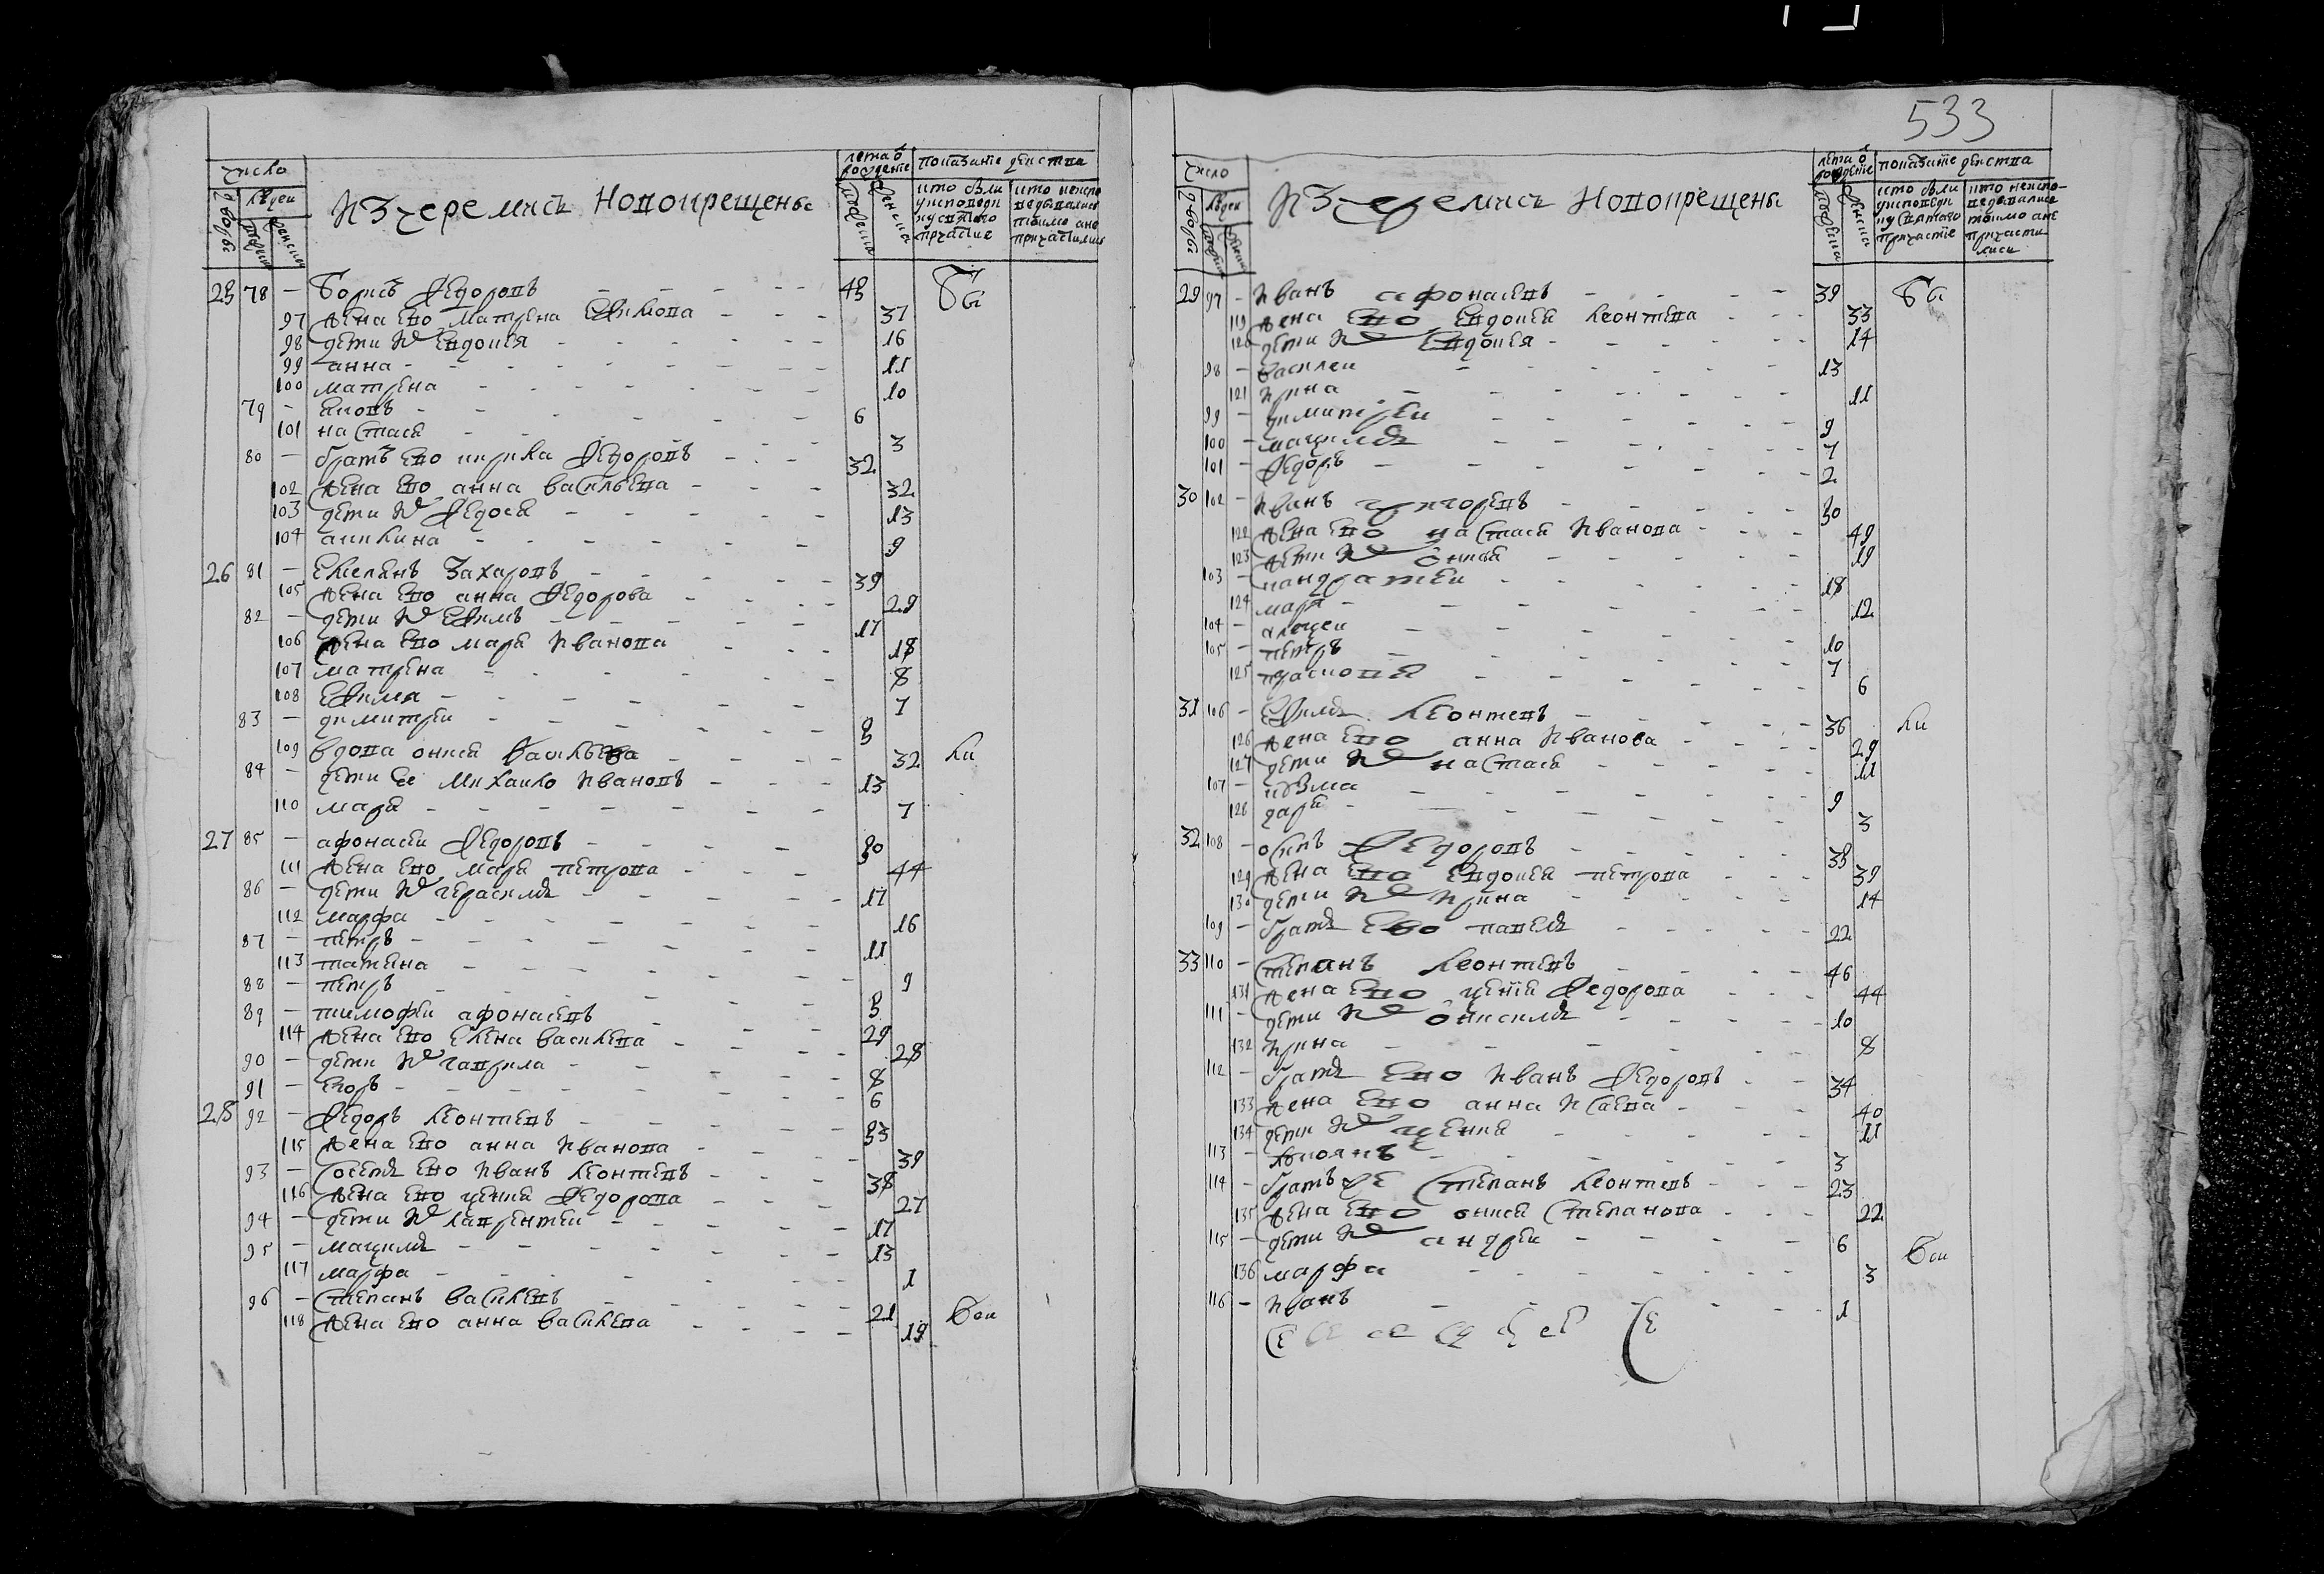 число
дворы
людей
мужеска
женска
Из черемисъ новокрещены
лета о рождение
мужеска
женска
показание действа
кто были у исповеди и у святого причастие
кто исповедывались токмо а не причастились
25 78 — Борисъ Федоровъ 45 бы
97 жена ево матрена Ефимова 37
98 дети их Евдокея 16
99 анна 11
100 матрена 10
79 — 6
101 настася 3
80 — братъ ево кирила Федоровъ 32
102 жена ево анна васильева 32
103 дети их Федося 13
104 акилина 9
26 81 — Емельянъ Захаровъ 39
105 жена ево анна Федорова 29
82 — дети их Ефимъ 17
106 жена ево маря Иванова 18
107 матрена 8
108 Ефимя 7
83 — димитреи 3
109 вдова онися Васильева 32 ли
84 — дети Ее Михаило Ивановъ 13
110 маря 7
27 85 — афонасеи Федоровъ 50
111 жена ево маря петрова 44
86 — дети их герасимъ 17
112 марфа 16
87 — петръ 11
113 татяна 9
88 — петръ 3
89 — тимофеи афонасевъ 29
114 жена ево Елена василева 28
90 — дети их гаврила 8
91 — Егоръ 6
28 92 — Федоръ Леонтевъ 53
115 жена ево анна Иванова 39
93 — соседъ ево Иванъ Леонтевъ 38
116 жена ево ксеня Федорова 27
94 — дети их лаврентеи 17
95 — макимъ 13
117 марфа 1
96 — Степанъ василевъ 21
118 жена ево анна василева 19 бои
533
число
дворы
людей
мужеска
женска
Из черемисъ Новокрещены
лета о рождение
мужеска
женска
показание действа
кто были у исповеди и у святаго причастие
кто неисповедывались токмо а не причастились
29 97 — Иванъ афонасевъ 39 бы
119 жена ево Евдокея Леонтева 33
120 дети их Евдокея 14
98 — василеи 13
121 Ирина 11
99 — димитреи 9
100 — макимъ 7
101 — Федоръ 2
30 102 — Иванъ григоревъ 50
122 жена ево настася Иванова 49
123 дети их онися 19
103 — кандратеи 18
124 маря 12
104 — алексеи 10
105 — петръ 7
125 прасковя 6
31 106 — Ефимъ Леонтевъ 36 ли
126 жена ево анна Иванова 29
127 дети их настася 11
107 — кузма 9
128 даря 3
32 108 — осипъ Федоровъ 38
129 жена ево Евдокея петрова 39
130 дети их Ирина 14
109 — братъ Ево павелъ 22
33 110 — степанъ Леонтевъ 46
131 жена ево ксения Федорова 44
111 — дети их онисимъ 10
132 Ирина 8
112 — братъ ево Иванъ Федоровъ 34
133 жена ево анна Исаева 40
134 дети их ксения 11
113 — 3
114 — братъ Степанъ Леонтевъ 23
135 жена ево онися Степанова 22
115 — дети их андреи 6 бои
136 марфа 3
116 — Иванъ 1